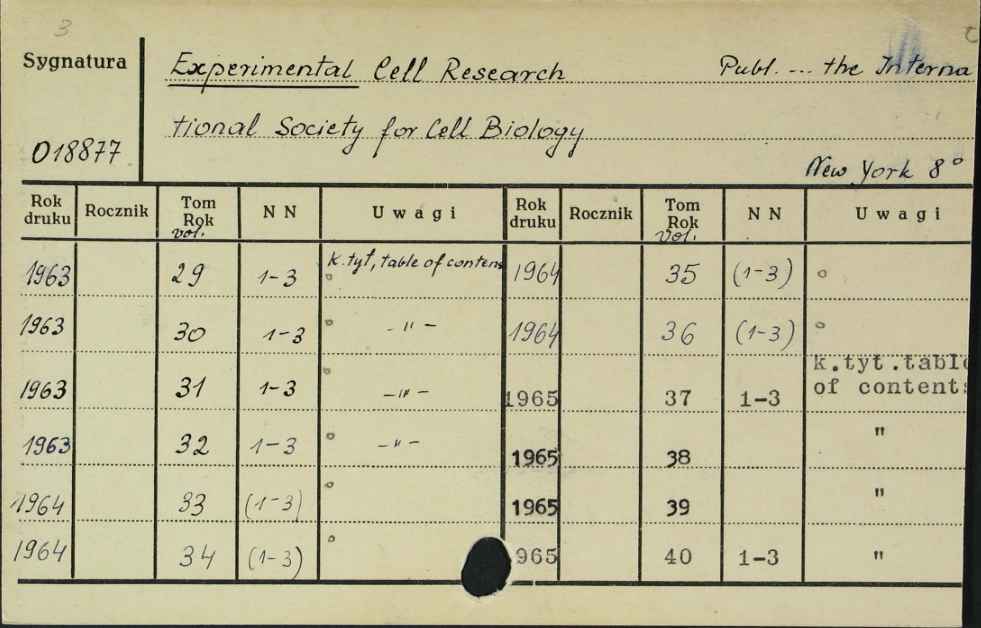 3
Sygnatura Experimental Cell Research Publ. ... the Interna
tional Society for Cell Biology
018877
New York 8°
Rok druku Rocznik Tom Rok vol. NN Uwagi Rok druku Rocznik Tom Rok vol. NN Uwagi
1963 29 1-3 k.tyt, table of contens 1964 35 (1-3) °
1963 30 1-3 ° -"- 1964 36 (1-3) °
1963 31 1-3 ° -"- 1965 37 1-3 k.tyt.table of contents
1963 32 1-3 ° -"- 1965 38 "
1964 33 (1-3) ° 1965 39 "
1964 34 (1-3) ° 965 40 1-3 "